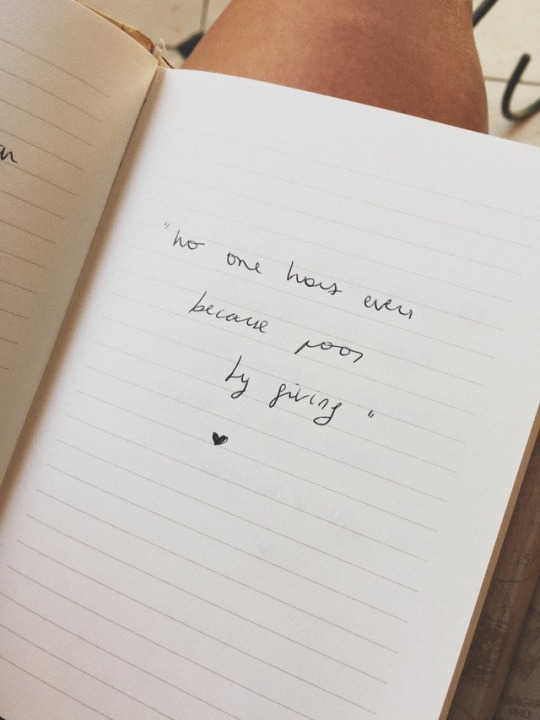 "no one has ever
became poor
by giving"